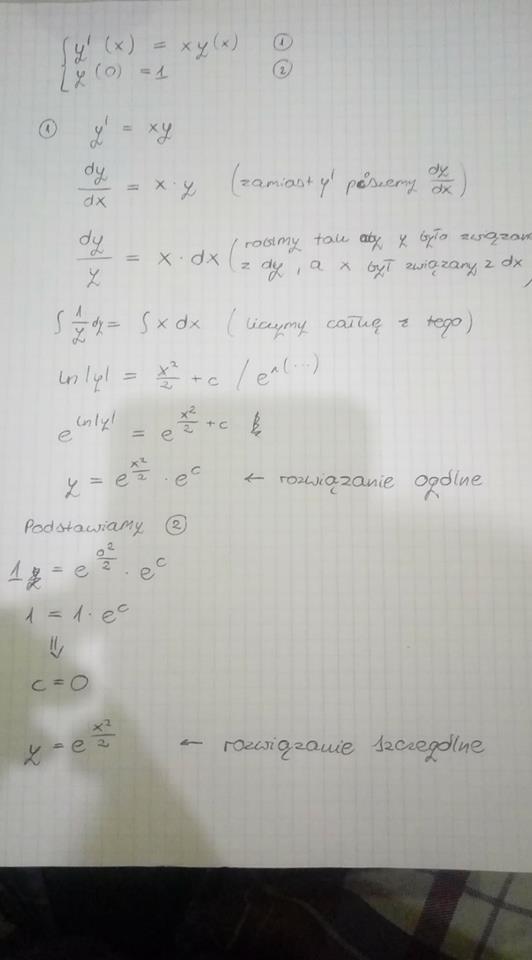 { y'(x) = x y(x) ①
y(0) = 1 ②
① y' = xy
dy/dx = x · y (zamiast y' piszemy dy/dx)
dy/y = x · dx (robimy tak aby y było związane
z dy, a x był związany z dx)
∫ 1/y dy = ∫ x dx (liczymy całkę z tego)
ln|y| = x²/2 + c / e^(...)
e^(ln|y|) = e^(x²/2 + c)
y = e^(x²/2) · e^c ← rozwiązanie ogólne
Podstawiamy ②
1 = e^(0²/2) · e^c
1 = 1 · e^c
⇓
c = 0
y = e^(x²/2) ← rozwiązanie szczególne